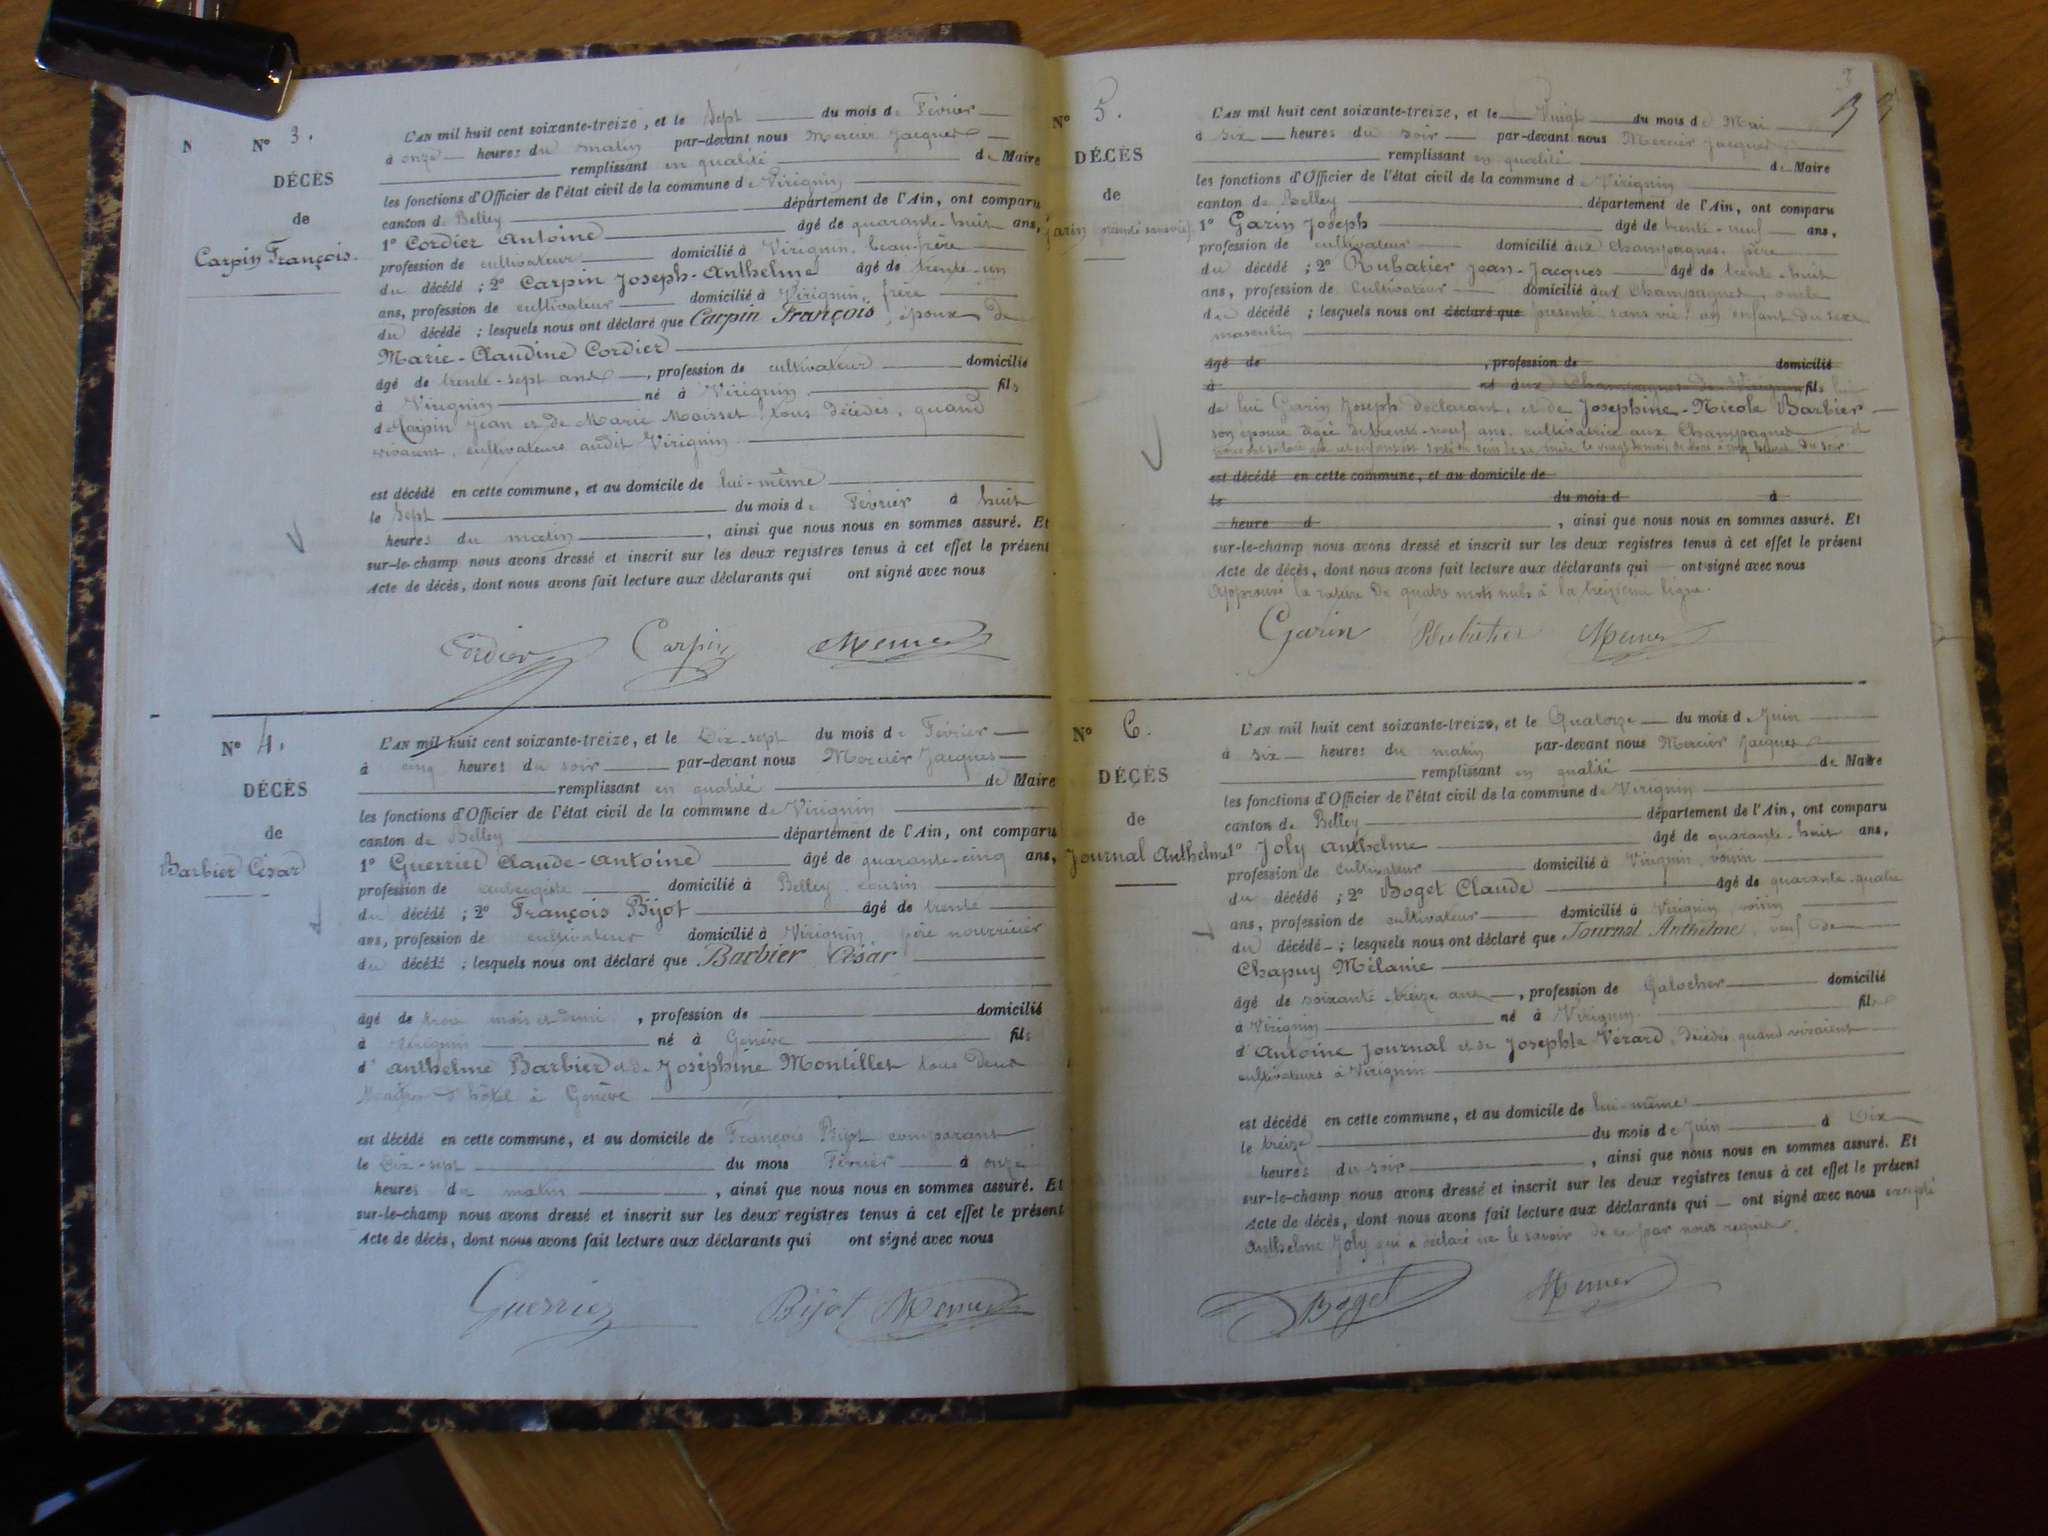 N
N° 3.
DÉCÈS
de
Carpin François.
L'AN mil huit cent soixante-treize, et le Sept du mois de Février
à onze heures du matin par-devant nous Mercier Jacques
remplissant en qualité de Maire
les fonctions d'Officier de l'état civil de la commune de Virignin
canton de Belley département de l'Ain, ont comparu
1° Cordier Antoine âgé de quarante-huit ans,
profession de cultivateur domicilié à Virignin, beau-frère
du décédé ; 2° Carpin Joseph-Anthelme âgé de trente-un
ans, profession de cultivateur domicilié à Virignin, frère
du décédé ; lesquels nous ont déclaré que Carpin François, époux de
Marie-Claudine Cordier
âgé de trente-sept ans, profession de cultivateur domicilié
à Virignin né à Virignin fils
de Carpin Jean et de Marie Moisset, tous décédés, quand
vivaient, cultivateurs audit Virignin
est décédé en cette commune, et au domicile de lui-même
le Sept du mois de Février à huit
heures du matin, ainsi que nous nous en sommes assuré. Et
sur-le-champ nous avons dressé et inscrit sur les deux registres tenus à cet effet le présent
Acte de décès, dont nous avons fait lecture aux déclarants qui ont signé avec nous
Cordier Carpin Mercier
N° 4.
DÉCÈS
de
Barbier César
L'AN mil huit cent soixante-treize, et le Dix-sept du mois de Février
à cinq heures du soir par-devant nous Mercier Jacques
remplissant en qualité de Maire
les fonctions d'Officier de l'état civil de la commune de Virignin
canton de Belley département de l'Ain, ont comparu
1° Guerrier Claude-Antoine âgé de quarante-cinq ans,
profession de aubergiste domicilié à Belley, cousin
du décédé ; 2° François Bijot âgé de trente
ans, profession de cultivateur domicilié à Virignin père nourricier
du décédé ; lesquels nous ont déclaré que Barbier César
âgé de trois mois et demi, profession de domicilié
à Virignin né à Genève fils
d'Anthelme Barbier et de Joséphine Montillet tous deux
Maîtres d'hôtel à Genève
est décédé en cette commune, et au domicile de François Bijot comparant
le Dix-sept du mois Février à onze
heures du matin, ainsi que nous nous en sommes assuré. Et
sur-le-champ nous avons dressé et inscrit sur les deux registres tenus à cet effet le présent
Acte de décès, dont nous avons fait lecture aux déclarants qui ont signé avec nous
Guerrier Bijot Mercier
3
N° 5.
DÉCÈS
de
Garin présenté sans vie
L'AN mil huit cent soixante-treize, et le Vingt du mois de Mai
à six heures du soir par-devant nous Mercier Jacques
remplissant en qualité de Maire
les fonctions d'Officier de l'état civil de la commune de Virignin
canton de Belley département de l'Ain, ont comparu
1° Garin Joseph âgé de trente-neuf ans,
profession de cultivateur domicilié aux Champagnes, père
du décédé ; 2° Rubatier Jean-Jacques âgé de trente-huit
ans, profession de Cultivateur domicilié aux Champagnes, oncle
du décédé ; lesquels nous ont déclaré que présenté sans vie, un enfant du sexe
masculin
âgé de, profession de domicilié
à né aux Champagnes de Virignin fils
de lui Garin Joseph déclarant, et de Josephine-Nicole Barbier
son épouse âgée de trente-neuf ans, cultivatrice aux Champagnes et
est décédé en cette commune, et au domicile de
le du mois d à
heure d, ainsi que nous nous en sommes assuré. Et
sur-le-champ nous avons dressé et inscrit sur les deux registres tenus à cet effet le présent
Acte de décès, dont nous avons fait lecture aux déclarants qui ont signé avec nous
Approuvé la rature de quatre mots nuls à la treizième ligne.
Garin Rubatier Mercier
N° 6.
DÉCÈS
de
Journal Anthelme
L'AN mil huit cent soixante-treize, et le Quatorze du mois de Juin
à six heures du matin par-devant nous Mercier Jacques
remplissant en qualité de Maire
les fonctions d'Officier de l'état civil de la commune de Virignin
canton de Belley département de l'Ain, ont comparu
1° Joly Anthelme âgé de quarante-huit ans,
profession de cultivateur domicilié à Virignin, voisin
du décédé ; 2° Boget Claude âgé de quarante-quatre
ans, profession de cultivateur domicilié à Virignin, voisin
du décédé ; lesquels nous ont déclaré que Journal Anthelme, veuf de
Chapuy Mélanie
âgé de soixante-treize ans, profession de Galocher domicilié
à Virignin né à Virignin fils
d'Antoine Journal et de Josephte Vérard, décédés quand vivaient
cultivateurs à Virignin
est décédé en cette commune, et au domicile de lui-même
le treize du mois de Juin à Dix
heures du soir, ainsi que nous nous en sommes assuré. Et
sur-le-champ nous avons dressé et inscrit sur les deux registres tenus à cet effet le présent
Acte de décès, dont nous avons fait lecture aux déclarants qui ont signé avec nous excepté
Anthelme Joly qui a déclaré ne le savoir de ce par nous requis.
Boget Mercier